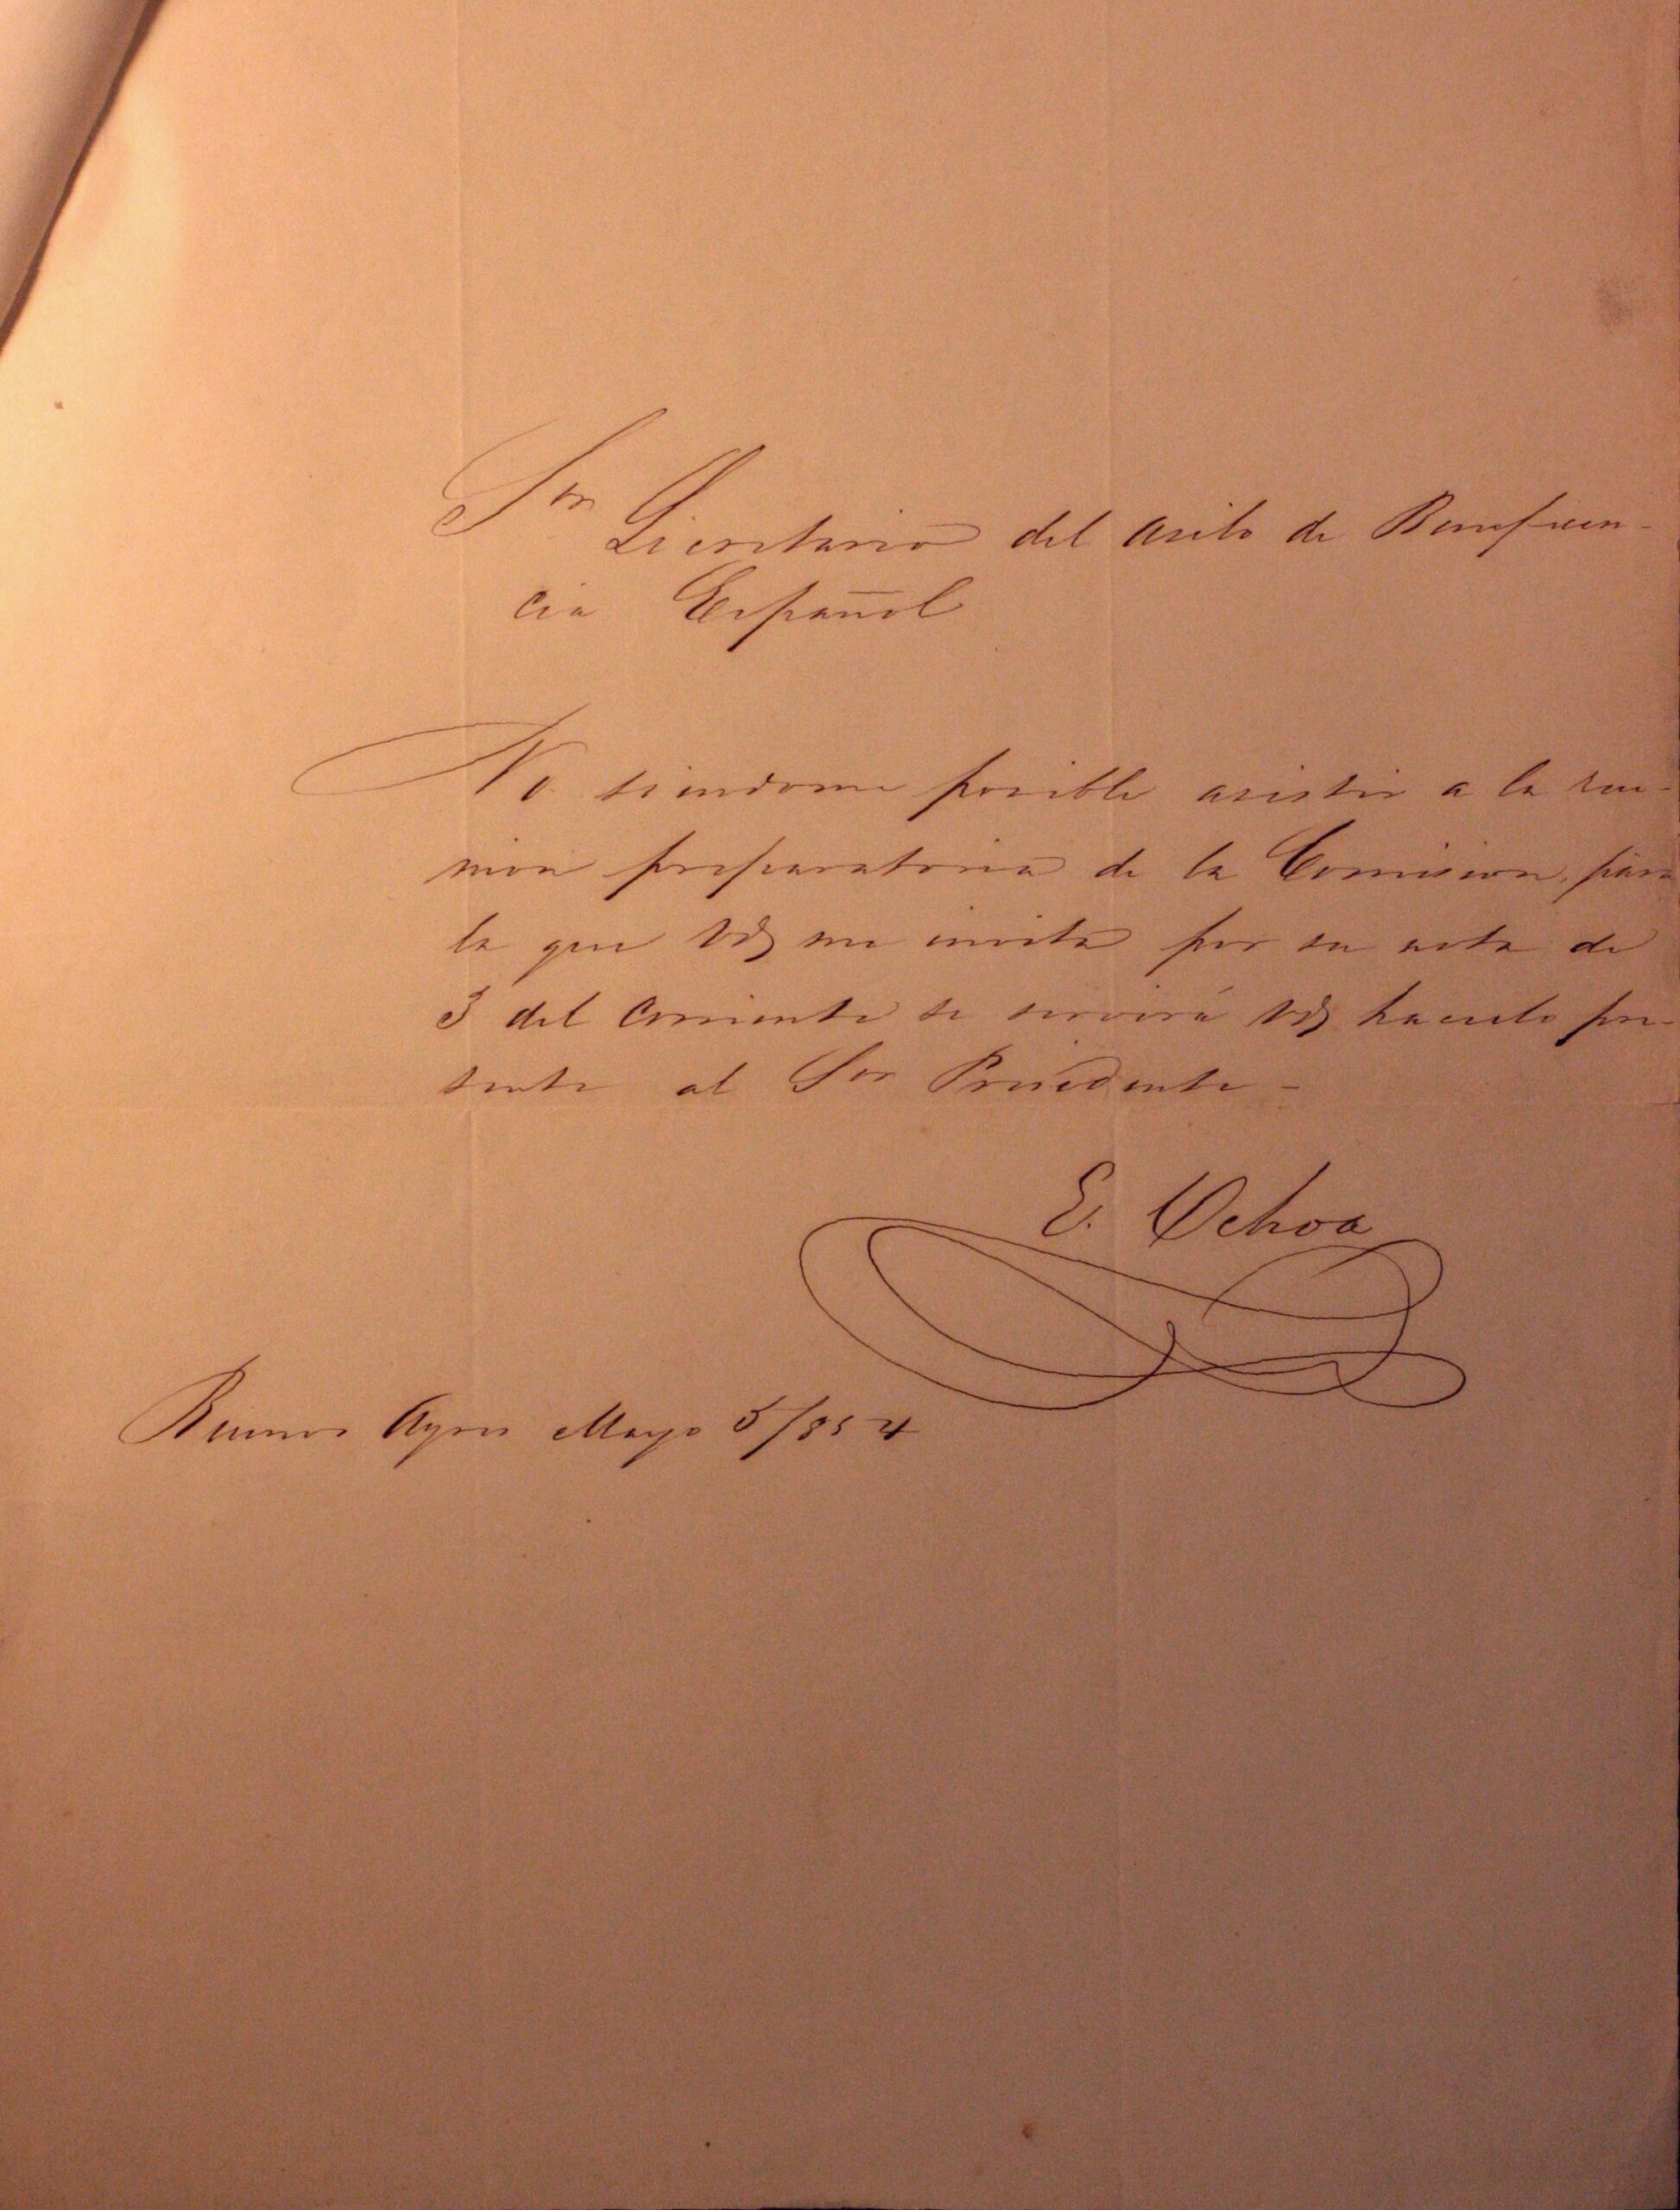 Sor
Secretario del asilo de Beneficen-
cia Español
No siendome posible asistir a la reu-
nion preparatoria de la Comision, para
la que Vd me invita por su nota de
3 del corriente se servirá Vd hacerlo pre-
sente al Sor Presidente -
E. Ochoa
Buenos Ayres Mayo 5/854